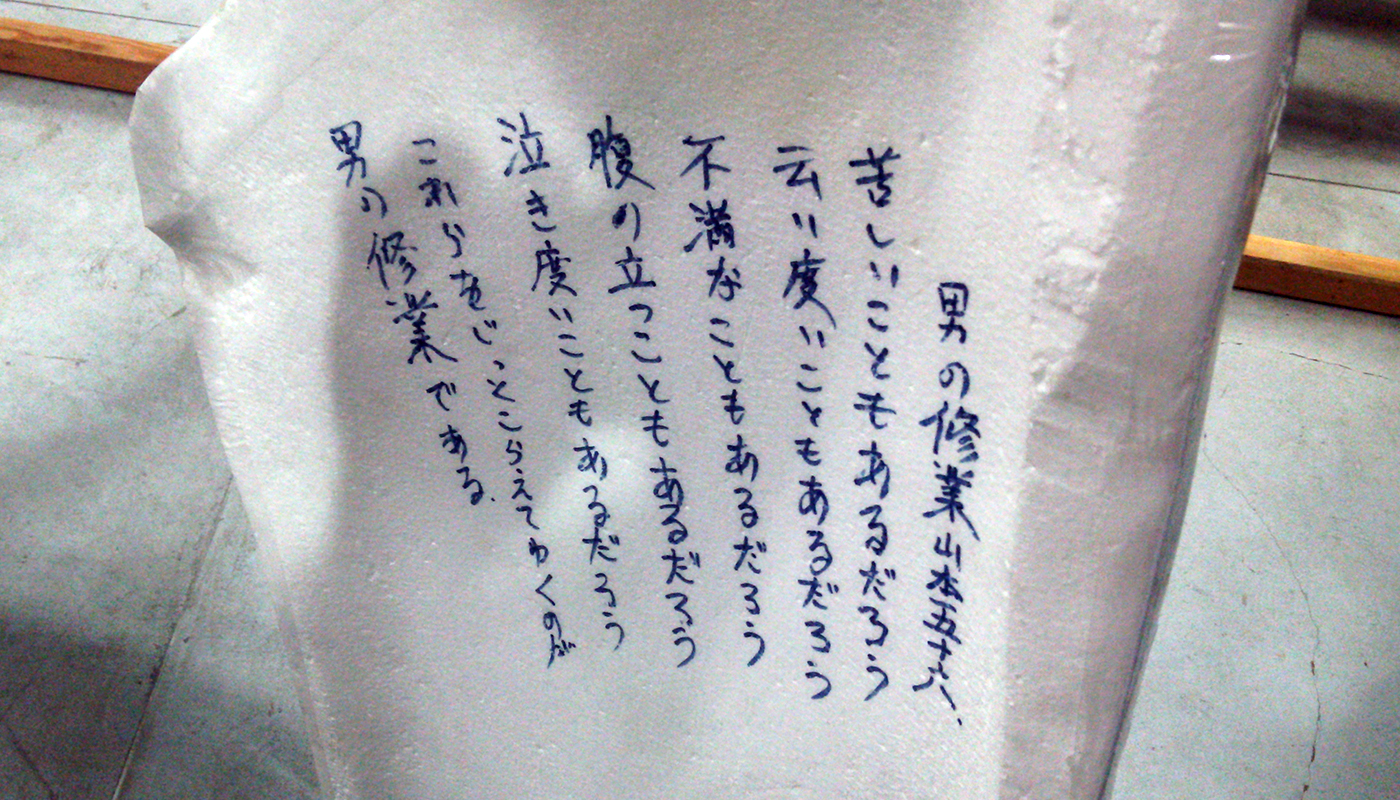 男の修業 山本五十六
苦しいこともあるだろう
云い度いこともあるだろう
不満なこともあるだろう
腹の立つこともあるだろう
泣き度いこともあるだろう
これらをじっとこらえてゆくのが
男の修業である.